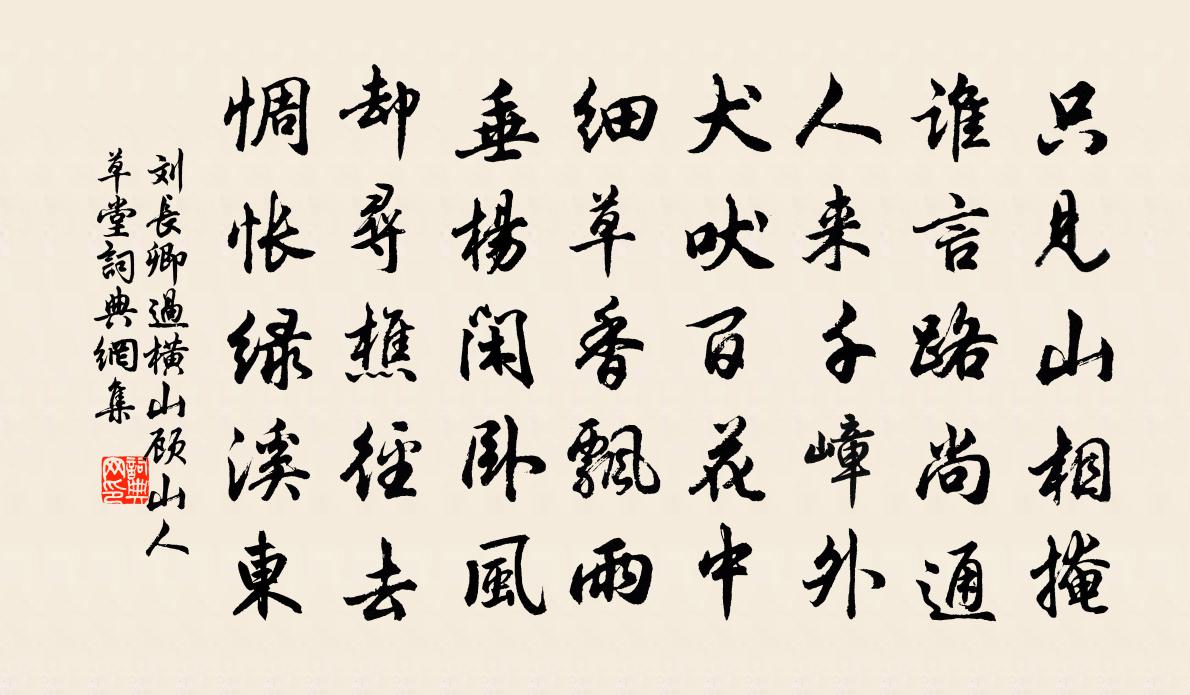 只見山相掩
谁言路尚通
人来千嶂外
犬吠百花中
细草香飄雨
垂楊閑卧風
却尋樵徑去
惆怅绿溪東
刘長卿過橫山顾山人
草堂詞典網集
詞典网印